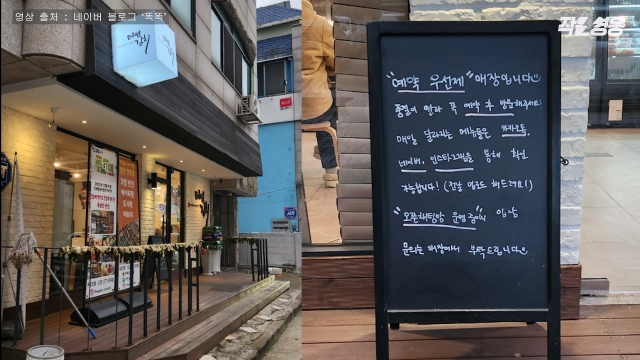 영상 출처 : 네이버 블로그 '똑똑'
작은영웅
"예약 우선제" 매장입니다
품절이 빨라 꼭 예약 후 방문해주세요!
매일 달라지는 메뉴들은 카카오톡,
네이버, 인스타그램을 통해 확인
가능합니다! (전날 업로드 해드려요!)
"오픈채팅방 운영 중"이니 입장
문의는 매장에서 부탁드립니다